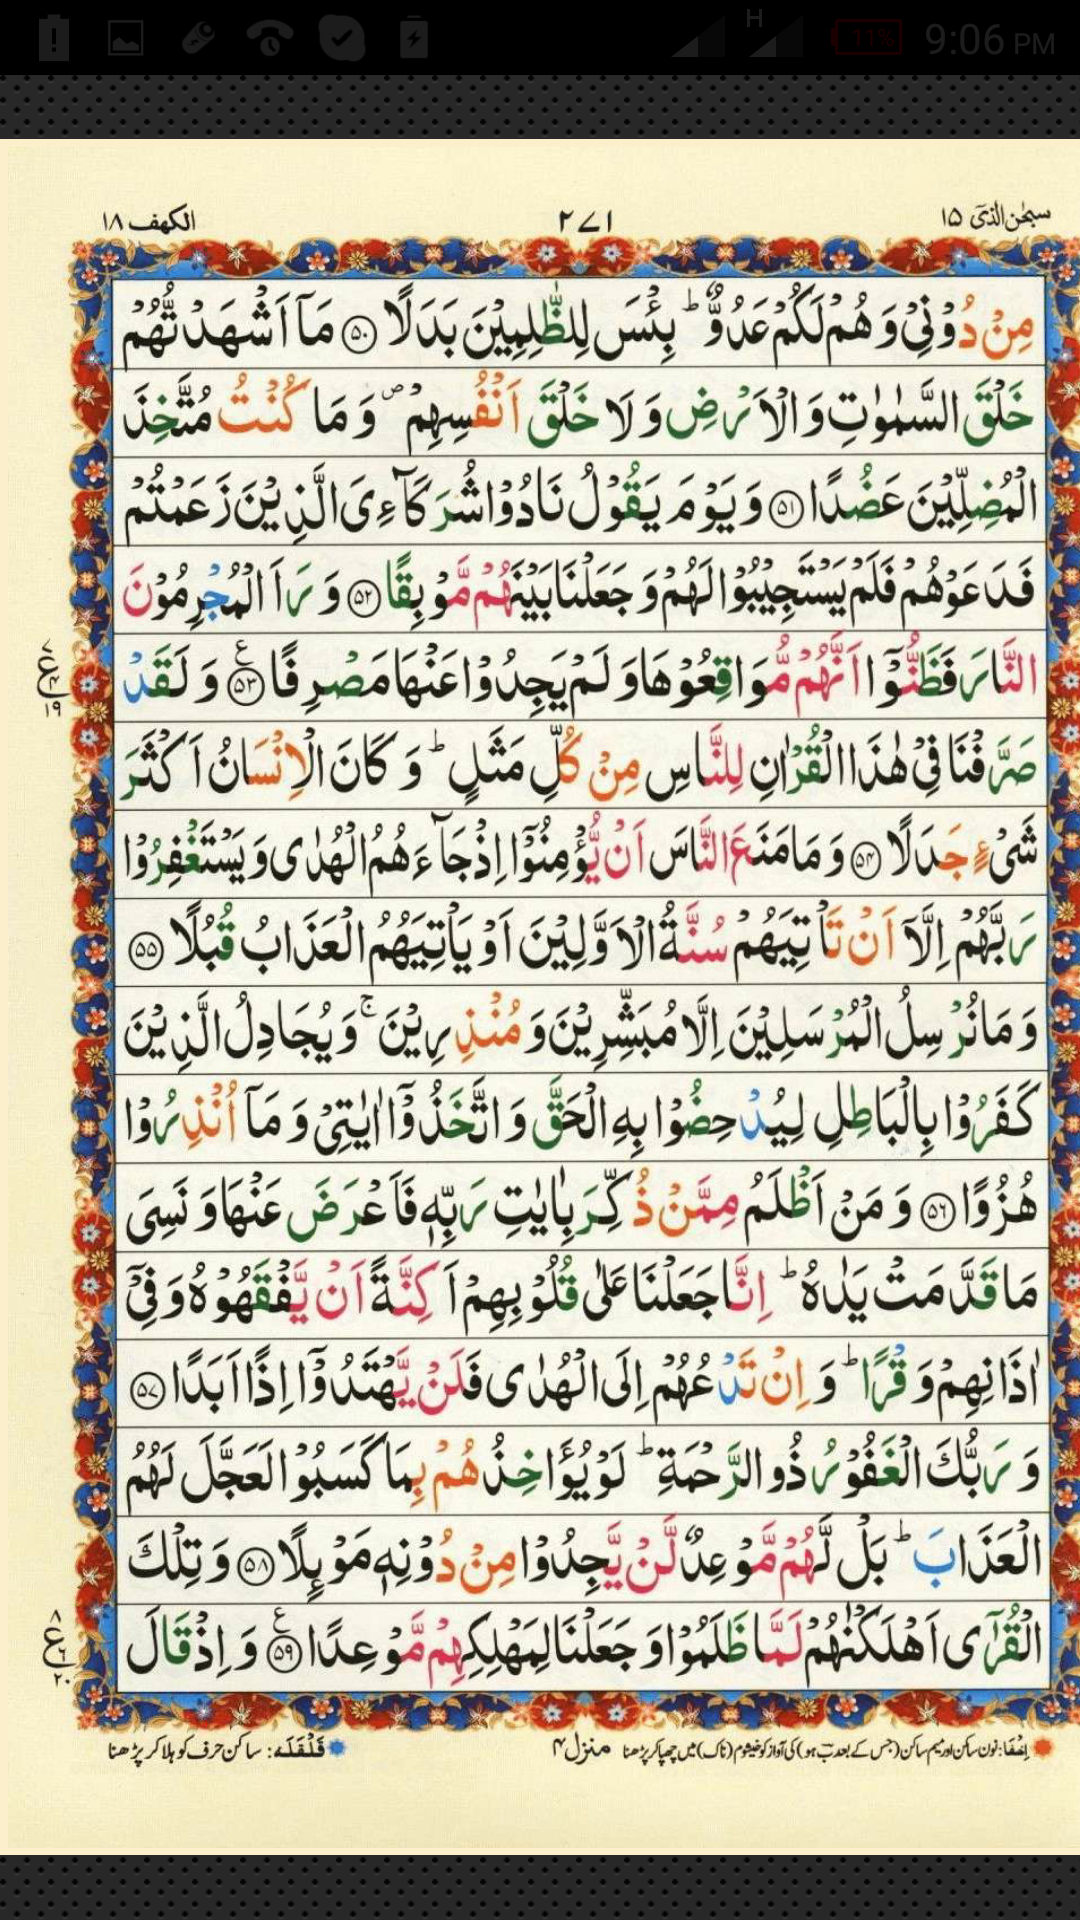 H 11% 9:06 PM
سبحٰن الذیٓ ۱۵ ۲۷۱ الکهف ۱۸
مِنْ دُوْنِيْ وَ هُمْ لَكُمْ عَدُوٌّ ؕ بِئْسَ لِلظّٰلِمِيْنَ بَدَلًا ۵۰ مَاۤ اَشْهَدْتُّهُمْ
خَلْقَ السَّمٰوٰتِ وَ الْاَرْضِ وَ لَا خَلْقَ اَنْفُسِهِمْ ۪ وَ مَا كُنْتُ مُتَّخِذَ
الْمُضِلِّيْنَ عَضُدًا ۵۱ وَ يَوْمَ يَقُوْلُ نَادُوْا شُرَكَآءِيَ الَّذِيْنَ زَعَمْتُمْ
فَدَعَوْهُمْ فَلَمْ يَسْتَجِيْبُوْا لَهُمْ وَ جَعَلْنَا بَيْنَهُمْ مَّوْبِقًا ۵۲ وَ رَاَ الْمُجْرِمُوْنَ
النَّارَ فَظَنُّوْۤا اَنَّهُمْ مُّوَاقِعُوْهَا وَ لَمْ يَجِدُوْا عَنْهَا مَصْرِفًا ۵۳ ع وَ لَقَدْ
ع ۷ ۱۹
صَرَّفْنَا فِيْ هٰذَا الْقُرْاٰنِ لِلنَّاسِ مِنْ كُلِّ مَثَلٍ ؕ وَ كَانَ الْاِنْسَانُ اَكْثَرَ
شَيْءٍ جَدَلًا ۵۴ وَ مَا مَنَعَ النَّاسَ اَنْ يُّؤْمِنُوْۤا اِذْ جَآءَهُمُ الْهُدٰى وَ يَسْتَغْفِرُوْا
رَبَّهُمْ اِلَّاۤ اَنْ تَاْتِيَهُمْ سُنَّةُ الْاَوَّلِيْنَ اَوْ يَاْتِيَهُمُ الْعَذَابُ قُبُلًا ۵۵
وَ مَا نُرْسِلُ الْمُرْسَلِيْنَ اِلَّا مُبَشِّرِيْنَ وَ مُنْذِرِيْنَ ۚ وَ يُجَادِلُ الَّذِيْنَ
كَفَرُوْا بِالْبَاطِلِ لِيُدْحِضُوْا بِهِ الْحَقَّ وَ اتَّخَذُوْۤا اٰيٰتِيْ وَ مَاۤ اُنْذِرُوْا
هُزُوًا ۵۶ وَ مَنْ اَظْلَمُ مِمَّنْ ذُكِّرَ بِاٰيٰتِ رَبِّهٖ فَاَعْرَضَ عَنْهَا وَ نَسِيَ
مَا قَدَّمَتْ يَدٰهُ ؕ اِنَّا جَعَلْنَا عَلٰى قُلُوْبِهِمْ اَكِنَّةً اَنْ يَّفْقَهُوْهُ وَ فِيْۤ
اٰذَانِهِمْ وَقْرًا ؕ وَ اِنْ تَدْعُهُمْ اِلَى الْهُدٰى فَلَنْ يَّهْتَدُوْۤا اِذًا اَبَدًا ۵۷
وَ رَبُّكَ الْغَفُوْرُ ذُو الرَّحْمَةِ ؕ لَوْ يُؤَاخِذُهُمْ بِمَا كَسَبُوْا لَعَجَّلَ لَهُمُ
الْعَذَابَ ؕ بَلْ لَّهُمْ مَّوْعِدٌ لَّنْ يَّجِدُوْا مِنْ دُوْنِهٖ مَوْىِٕلًا ۵۸ وَ تِلْكَ
الْقُرٰۤى اَهْلَكْنٰهُمْ لَمَّا ظَلَمُوْا وَ جَعَلْنَا لِمَهْلِكِهِمْ مَّوْعِدًا ۵۹ ع وَ اِذْ قَالَ
ع ۸ ۶ ۲۰
اِخفَا: نون ساکن اور میم ساکن (جس کے بعد ب ہو) کی آواز کو خیشوم (ناک) میں چھپا کر پڑھنا منزل ۴ قَلْقَلَه: ساکن حرف کو ہلا کر پڑھنا